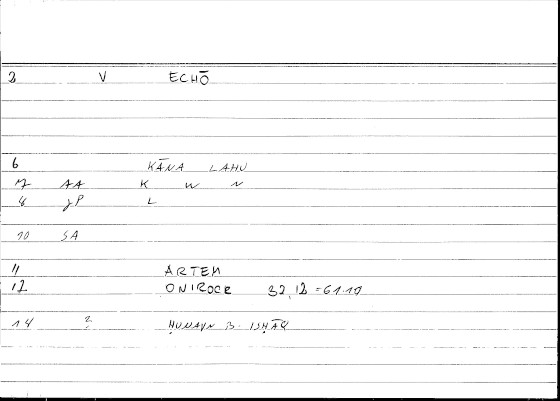 2 V ECHŌ
6 KĀNA LAHU
7 AA K W N
8 JP L
10 SA
11 ARTEM
12 ONIROCR 32,12 = 61.10
14 ? ḤUNAYN B. ISḤĀQ